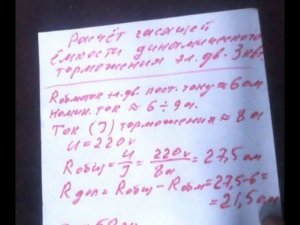 Расчёт гасящей
ёмкости динамического
торможения эл. дв. 3 квт.
Rобмоток эл. дв. пост. току ≈ 6 ом
Номин. ток ≈ 6 ÷ 9 а.
Ток (J) торможения ≈ 8 а
U = 220 v
Rобщ = U/J = 220v/8а = 27,5 ом
Rдоп = Rобщ - Rобм = 27,5 - 6 =
= 21,5 ом